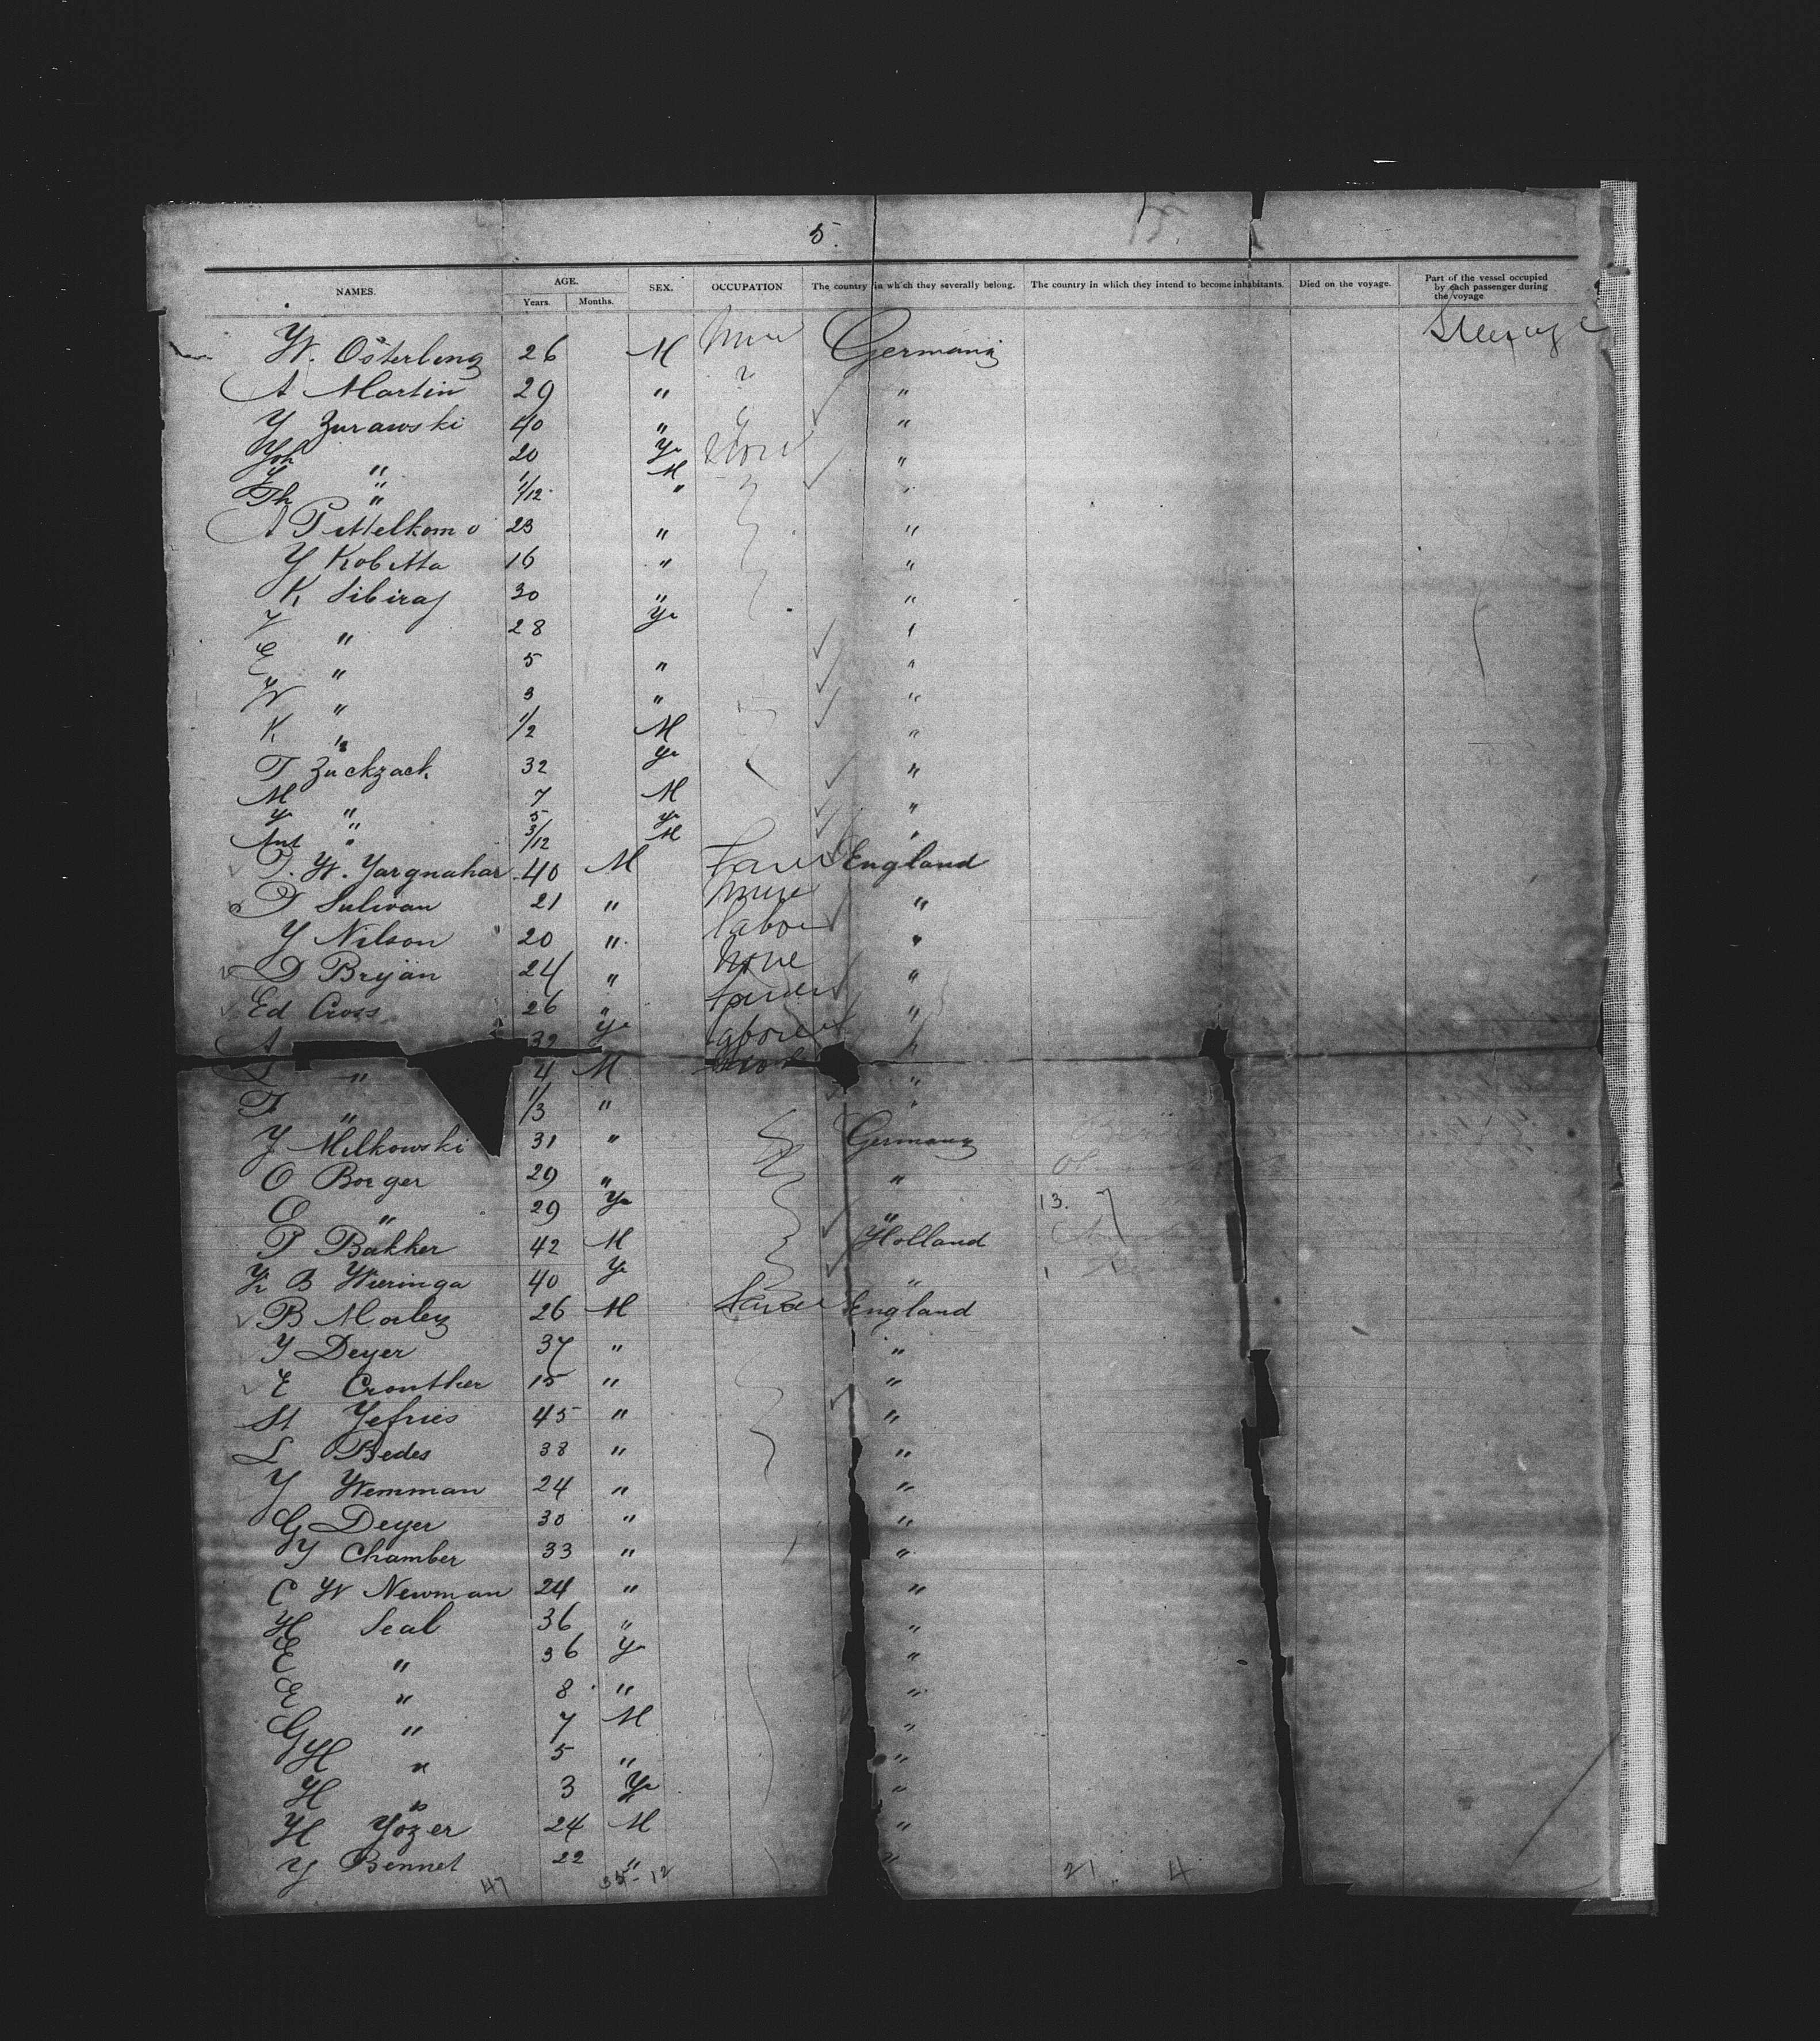 5.
NAMES. AGE. SEX. OCCUPATION The country in which they severally belong. The country in which they intend to become inhabitants. Died on the voyage. Part of the vessel occupied by each passenger during the voyage
Years. Months.
W. Österling 26 M Germany Steerage
A Martin 29 " "
Y Zurawski 40 " "
Joh " 20 Ye "
Y " 1/12 M "
Th " "
A Pittelkow 23 " "
Y Kobitta 16 " "
K Sibiray 30 " "
Y " 28 Ye "
E " 5 " "
W " 3 " "
K " 1/2 M "
T Zuckzack 32 Ye "
M " 7 M "
Ye " 5 Ye
Ant " 3/12 M "
P. W. Yargnahar 40 M England
D Sulivan 21 " "
Y Nilson 20 " labor "
D Bryan 24 " None "
Ed Cross 26 " "
A 32 Ye laborer "
" 4 M "
T " 1/3 " "
Y Milkowski 31 " Germany
O Borger 29 " "
O " 29 Ye " 13.
P Bakker 42 M Holland
B Wieringa 40 Ye "
B Morley 26 M England
Y Deyer 37 " "
E Crouther 15 " "
St Yefries 45 " "
L Bedes 38 " "
Y Wemman 24 " "
G Deyer 30 " "
Y Chamber 33 " "
C W Newman 24 " "
H Seal 36 " "
E " 36 Ye "
E " 8 " "
G " 7 M "
H " 5 " "
H " 3 Ye "
H Yozer 24 M "
Y Bennet 22 " "
47 35-12 21 4